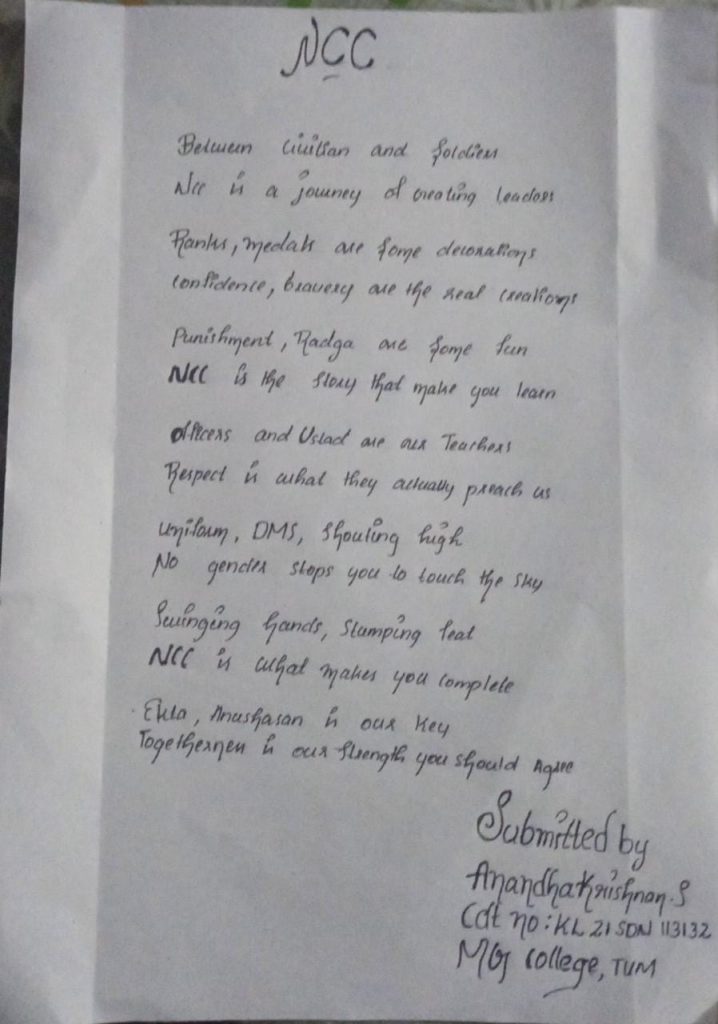 NCC
Between Civilian and Soldiers
Ncc is a journey of creating leaders
Ranks, medals are some decorations
Confidence, bravery are the real creations
Punishment, Radga are some fun
NCC is the story that make you learn
Officers and Ustad are our Teachers
Respect is what they actually preach us
Uniform, DMS, Shouting high
No gender stops you to touch the sky
Swinging hands, Stamping feat
NCC is what makes you complete
Ekta, Anushasan is our key
Togetherness is our Strength you should Agree
Submitted by
Anandhakrishnan.S
Cdt no: KL 21 SDN 113132
MG College, TVM